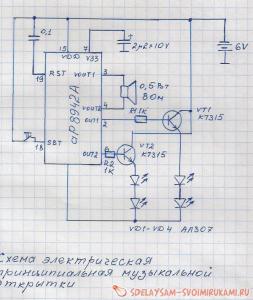 0,1
15
7
VDD
V33
2μ2×10V
6V
19
RST
VOUT1
3
0,5Вт
8Ом
aP8942A
VOUT2
4
R1 1K
VT1
OUT1
2
КТ315
SBT
18
OUT2
6
VT2
КТ315
R2
1K
VD1-VD4 АЛ307
Схема электрическая
принципиальная музыкальной
открытки
SDELAYSAM-SVOIMIRUKAMI.RU